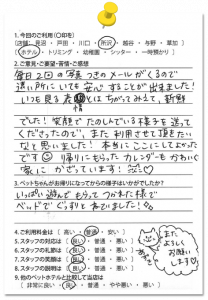 1. 今回のご利用(○印を)
(店舗: 見沼 ・ 戸田 ・ 川口 ・ 所沢 ・ 越谷 ・ 与野 ・ 草加)
(ホテル ・ トリミング ・ 幼稚園 ・ シッター ・ 一時預かり)
2. ご意見・ご要望・苦情・ご感想
毎日2回の写真つきのメールがくるので
遠い所にいても安心することが出来ました!
いつも見る表情とはちがってみえて、新鮮
でした! 笑顔でたのしんでいる様子を送って
くださったので、また利用させて頂きたい
なと思いました! 本当にここにしてよかった
です 帰りにもらったカレンダーもかわいく
家にかざっています!
3. ペットちゃんがお帰りになってからの様子はいかがでしたか?
いっぱい遊んでもらってつかれた様で
ベッドでぐっすりとねていました!
4. ご利用料金は ( 高い ・ 普通 ・ 安い )
5. スタッフの対応は ( 良い ・ 普通 ・ 悪い )
6. スタッフの礼儀は ( 良い ・ 普通 ・ 悪い )
7. スタッフの笑顔は ( 良い ・ 普通 ・ 悪い )
8. スタッフの説明は ( 良い ・ 普通 ・ 悪い )
9. 他のペットホテルと比較して当店は
( 非常に良い ・ 良い ・ 普通 ・ やや悪い ・ 悪い )
また
よろしく
お願い
します